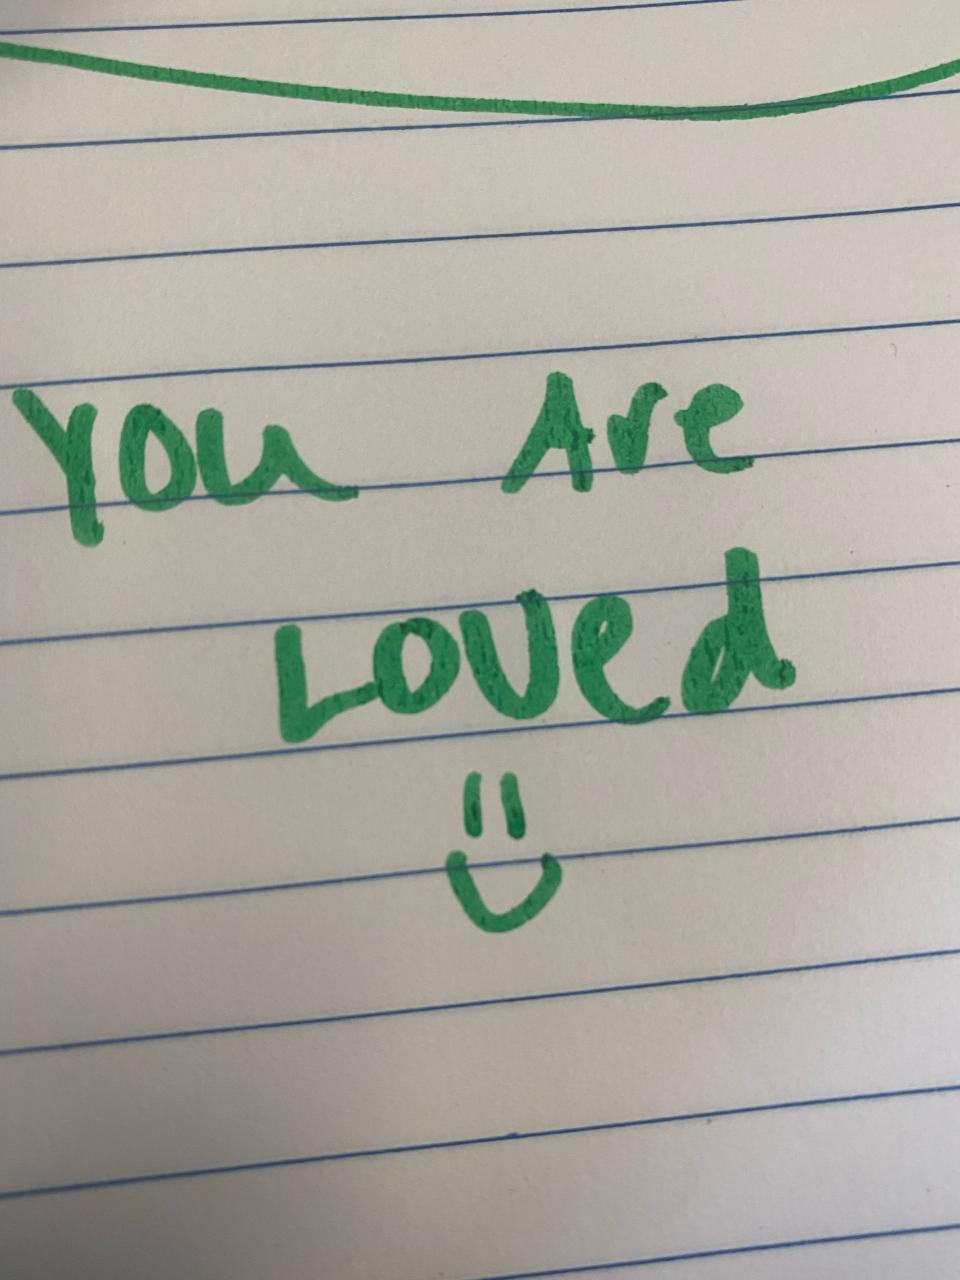 You Are
Loved